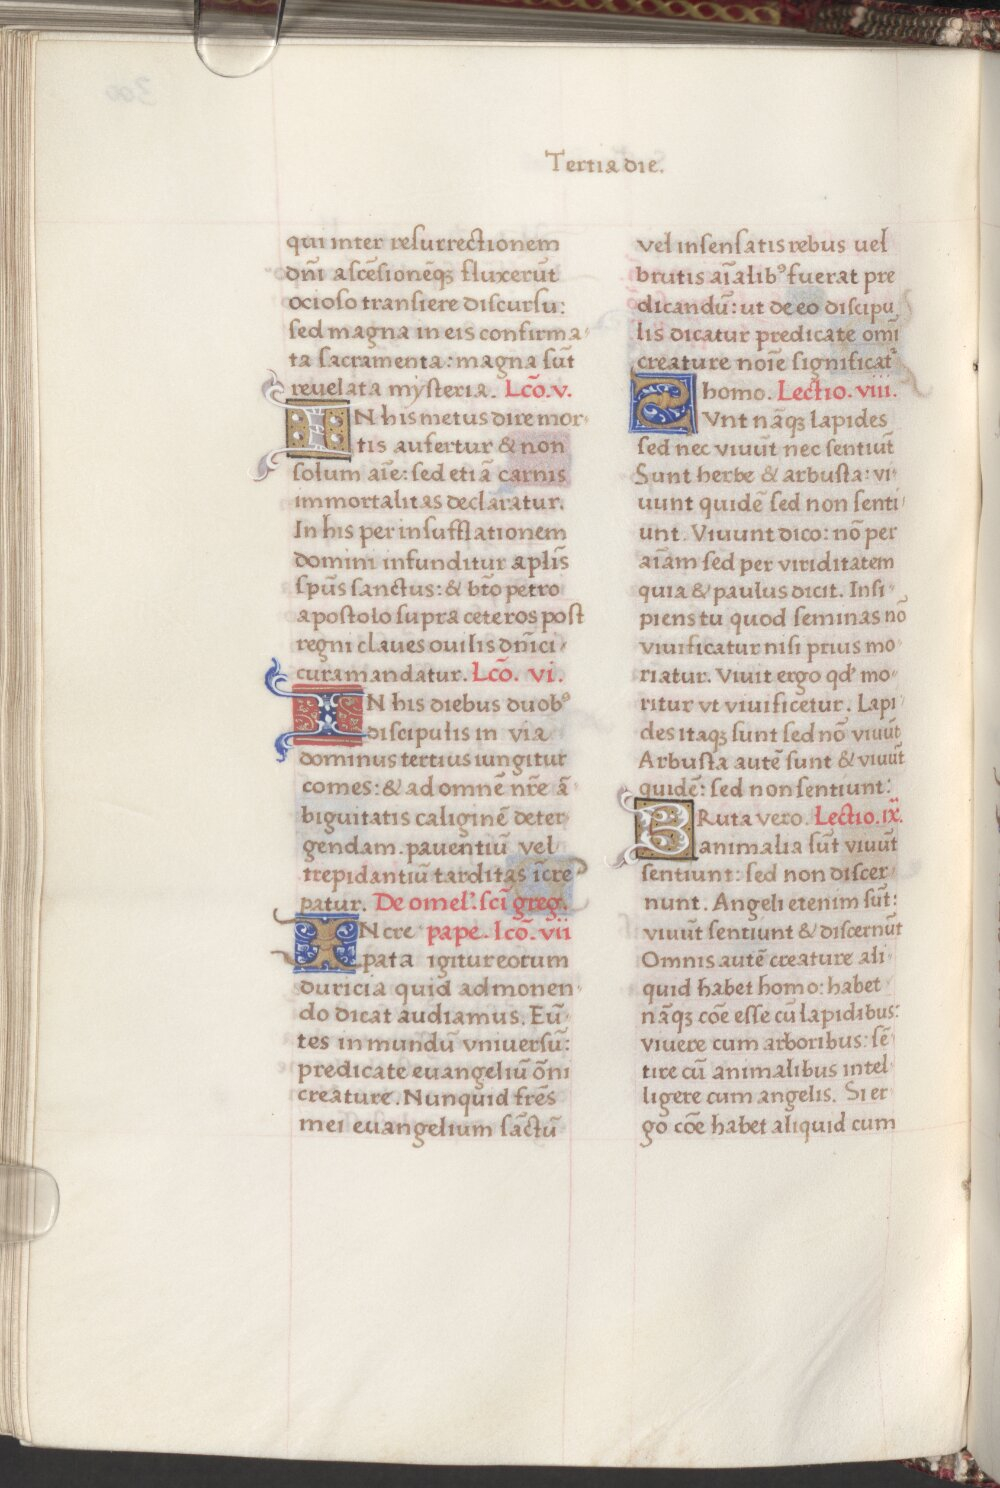 Tertia die.
qui inter resurrectionem
dn̄i ascēsionēqꝫ fluxerūt
ocioso transiere discursu:
sed magna in eis confirma
ta sacramenta: magna sūt
reuelata mysteria. Lcō. v.
IN his metus dire mor
tis aufertur & non
solum aīe: sed etiā carnis
immortalitas declaratur.
In his per insufflationem
domini infunditur aplīs
spūs sanctus: & btō petro
apostolo supra ceteros post
regni claues ouilis dn̄ici
cura mandatur. Lcō. vi.
IN his diebus duobꝰ
discipulis in via
dominus tertius iungitur
comes: & ad omnē nr̄e ā
biguitatis caliginē deter
gendam. pauentiū vel
trepidantiū tarditas īcre
patur. De omel'. scī greg.
INcre pape. lcō. vii
pata igitur eorum
duricia quid admonen
do dicat audiamus. Eū
tes in mundū vniuersū:
predicate euangeliū ōni
creature. Nunquid frēs
mei euangelium sāctū
vel insensatis rebus uel
brutis aīalibꝰ fuerat pre
dicandū: ut de eo discipu
lis dicatur predicate omī
creature noīe significat᷑
homo. Lectio. viii.
SVnt nāqꝫ lapides
sed nec viuūt nec sentiūt
Sunt herbe & arbusta: vi
uunt quidē sed non senti
unt. Viuunt dico: nō per
aīam sed per viriditatem
quia & paulus dicit. Insi
piens tu quod seminas nō
viuificatur nisi prius mo
riatur. Viuit ergo qd' mo
ritur vt viuificetur. Lapi
des itaqꝫ sunt sed nō viuūt
Arbusta autē sunt & viuūt
quidē: sed non sentiunt:
BRuta vero. Lectio. ix.
animalia sūt viuūt
sentiunt: sed non discer
nunt. Angeli etenim sūt:
viuūt sentiunt & discernūt
Omnis autē creature ali
quid habet homo: habet
nāqꝫ cōe esse cū lapidibus:
viuere cum arboribus: sē
tire cū animalibus intel
ligere cum angelis. Si er
go cōe habet aliquid cum